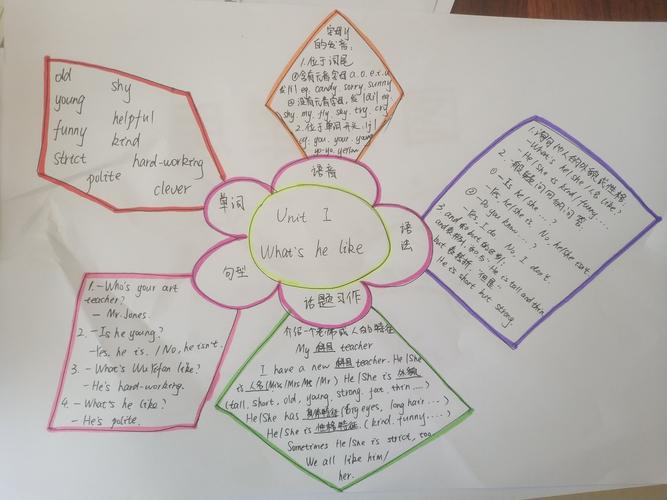 Unit 1
What's he like
单词
语音
语法
句型
话题习作
old
shy
young
helpful
funny
kind
strict
hard-working
polite
clever
字母y
的发音:
1.位于词尾
①含有元音字母a.o.e.u
发|i| eg. candy. sorry. sunny
②没有元音字母,发|ai| eg.
shy. my. fly. say. try. cry
2.位于单词开头,|j|
eg. you. your. young
yo-yo. yellow
1.询问他人的外貌或性格:
-What's he/she/人名 like?
- He/She is kind/funny....
2.一般疑问句的问答
① -Is he/she...?
-Yes, he/she is. No, he/she isn't
② -Do you know...?
-Yes, I do No, I don't.
3. and和but的区别:
and表并列,"和,与" He is tall and thin
but 表转折,"但是"
He is short but strong.
1.-Who's your art
teacher?
- Mr Jones.
2.-Is he young?
-Yes, he is. /No, he isn't.
3.-What's Wu Yifan like?
-He's hard-working.
4.-What's he like?
-He's polite.
介绍一个老师或人的特征
My 科目 teacher
I have a new 科目 teacher. He/She
is 人名(Miss/Mrs/Ms/Mr) He/She is 外貌
(tall, short, old, young, strong, fat thin....)
He/She has 身体特征(big eyes, long hair...)
He/She is 性格特征.(kind, funny....)
Sometimes He/She is strict, too
We all like him/
her.